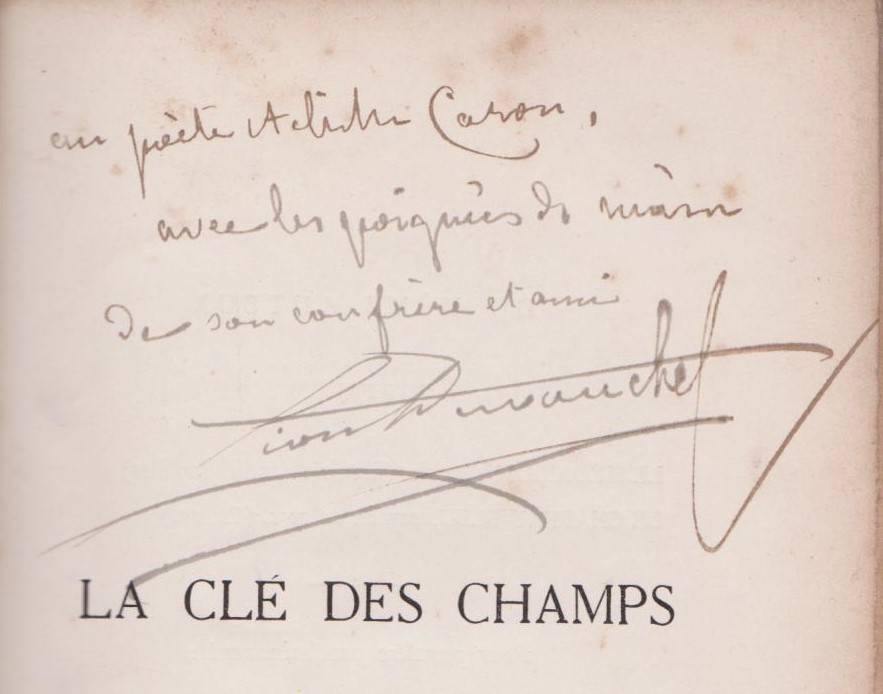 au poète Achille Caron,
avec les poignées de main
de son confrère et ami
Léon Duvauchel
LA CLÉ DES CHAMPS